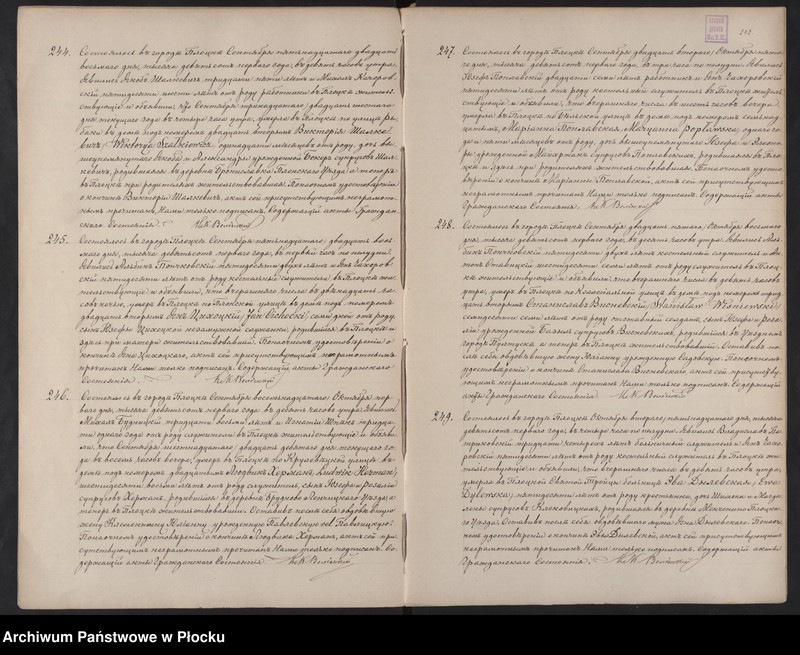 244. Состоялось въ городѣ Плоцкѣ Сентября пятнадцатаго двадцать
восьмаго дня, тысяча девятьсотъ перваго года, въ девять часовъ утра.
Явились Яковъ Шалкевичъ тридцати пяти лѣтъ и
пятидесяти шести лѣтъ отъ роду работники въ Плоцкѣ житель-
ствующіе и объявили, что Сентября тринадцатаго двадцать шестаго
дня текущаго года въ четыре часа утра, умерла въ Плоцкѣ по улицѣ
въ домѣ подъ номеромъ двадцать вторымъ Викторія Шалке-
вичъ, Wiktorya Szalkiewicz, одинадцати мѣсяцевъ отъ роду, дочь вы-
шеупомянутаго Якова и Александры урожденной супруговъ Шал-
кевичъ, родившаяся въ деревнѣ Плонскаго Уѣзда а теперь
въ Плоцкѣ при родителяхъ жительствовавшая. По настоящемъ удостовѣреніи
о кончинѣ Викторіи Шалкевичъ, актъ сей присутствующимъ неграмот-
нымъ прочитанъ Нами только подписанъ. Содержащій акты Граждан-
скаго Состоянія.
245. Состоялось въ городѣ Плоцкѣ Сентября пятнадцатаго, двадцать вось-
маго дня, тысяча девятьсотъ перваго года, въ первый часъ по полудни.
Явились пятидесяти двухъ лѣтъ и Янъ
пятидесяти лѣтъ отъ роду костельный служители въ Плоцкѣ жи-
тельствующіе и объявили, что вчерашняго числа въ двѣнадцать ча-
совъ ночью, умеръ въ Плоцкѣ по улицѣ въ домѣ подъ номеромъ
двадцать вторымъ Янъ Цихоцкій, Jan Cichocki, семи дней отъ роду,
сынъ Цихоцкой незамужней служанки, родившійся въ Плоцкѣ и
здѣсь при матери жительствовавшій. По настоящемъ удостовѣреніи о
кончинѣ Яна Цихоцкаго, актъ сей присутствующимъ неграмотнымъ
прочитанъ Нами только подписанъ. Содержащій акты Гражданскаго
Состоянія.
246. Состоялось въ городѣ Плоцкѣ Сентября восемнадцатаго, Октября пер-
ваго дня, тысяча девятьсотъ перваго года, въ девять часовъ утра. Явились
Михаилъ тридцати восьми лѣтъ и Игнатій тридца-
ти одного года отъ роду служители въ Плоцкѣ жительствующіе и объяви-
ли, что Сентября шестнадцатаго, двадцать девятаго дня текущаго го-
да въ восемь часовъ вечера, умеръ въ Плоцкѣ по улицѣ въ
домѣ подъ номеромъ двадцатымъ Людвикъ Херманъ, Ludwik Herman,
шестидесяти восьми лѣтъ отъ роду служитель, сынъ Іосифа и Розаліи
супруговъ Херманъ, родившійся въ деревнѣ Уѣзда а
теперь въ Плоцкѣ жительствовавшій. Оставивъ послѣ себя овдовѣвшую
жену урожденную
По настоящемъ удостовѣреніи о кончинѣ Людвика Хермана, актъ сей при-
сутствующимъ неграмотнымъ прочитанъ Нами только подписанъ. Со-
держащій акты Гражданскаго Состоянія.
247. Состоялось въ городѣ Плоцкѣ Сентября двадцать втораго, Октября пята-
го дня, тысяча девятьсотъ перваго года, въ три часа по полудни. Явились
Іосифъ Поплавскій двадцати семи лѣтъ работникъ и Янъ
пятидесяти лѣтъ отъ роду костельный служитель въ Плоцкѣ житель-
ствующіе и объявили, что вчерашняго числа въ шесть часовъ вечера
умерла въ Плоцкѣ по улицѣ въ домѣ подъ номеромъ семьнад-
цатымъ, Маріанна Поплавская, Maryanna Popławska, одного го-
да и пяти мѣсяцевъ отъ роду, дочь вышеупомянутаго Іосифа и
урожденной супруговъ Поплавскихъ, родившаяся въ Пло-
цкѣ и здѣсь при родителяхъ жительствовавшая. По настоящемъ удосто-
вѣреніи о кончинѣ Маріанны Поплавской, актъ сей присутствующимъ
неграмотнымъ прочитанъ Нами только подписанъ. Содержащій акты
Гражданскаго Состоянія.
248. Состоялось въ городѣ Плоцкѣ Сентября двадцать пятаго, Октября восьмаго
дня, тысяча девятьсотъ перваго года, въ десять часовъ утра. Явились
пятидесяти двухъ лѣтъ костельный служитель и Ан-
тонъ шестидесяти семи лѣтъ отъ роду служитель въ Плоц-
кѣ жительствующіе и объявили, что вчерашняго числа въ девять часовъ
утра, умеръ въ Плоцкѣ по улицѣ въ домѣ подъ номеромъ трид-
цать вторымъ Станиславъ Висневскій, Stanisław Wiśniewski,
семидесяти семи лѣтъ отъ роду отставной солдатъ, сынъ Іосифа и Роза-
ліи урожденной супруговъ Висневскихъ, родившійся въ Уѣздномъ
городѣ Пултускѣ а теперь въ Плоцкѣ жительствовавшій. Оставивъ по-
слѣ себя овдовѣвшую жену урожденную По настоящемъ
удостовѣреніи о кончинѣ Станислава Висневскаго, актъ сей присутству-
ющимъ неграмотнымъ прочитанъ Нами только подписанъ. Содержащій
акты Гражданскаго Состоянія.
249. Состоялось въ городѣ Плоцкѣ Октября втораго, пятнадцатаго дня, тысяча
девятьсотъ перваго года, въ четыре часа по полудни. Явились Владиславъ
тридцати четырехъ лѣтъ больничный служитель и Янъ
пятидесяти лѣтъ отъ роду костельный служитель въ Плоцкѣ жи-
тельствующіе и объявили, что вчерашняго числа въ девять часовъ утра,
умерла въ Плоцкѣ въ Святой Троицы больницѣ Эва Дылевская, Ewa
Dylewska, пятидесяти лѣтъ отъ роду крестьянка, дочь и
супруговъ родившаяся въ деревнѣ
Уѣзда. Оставивъ послѣ себя овдовѣвшаго мужа Дылевскаго. По настоя-
щемъ удостовѣреніи о кончинѣ Эвы Дылевской, актъ сей присутствующимъ
неграмотнымъ прочитанъ Нами только подписанъ. Содержащій акты
Гражданскаго Состоянія.
Archiwum Państwowe w Płocku